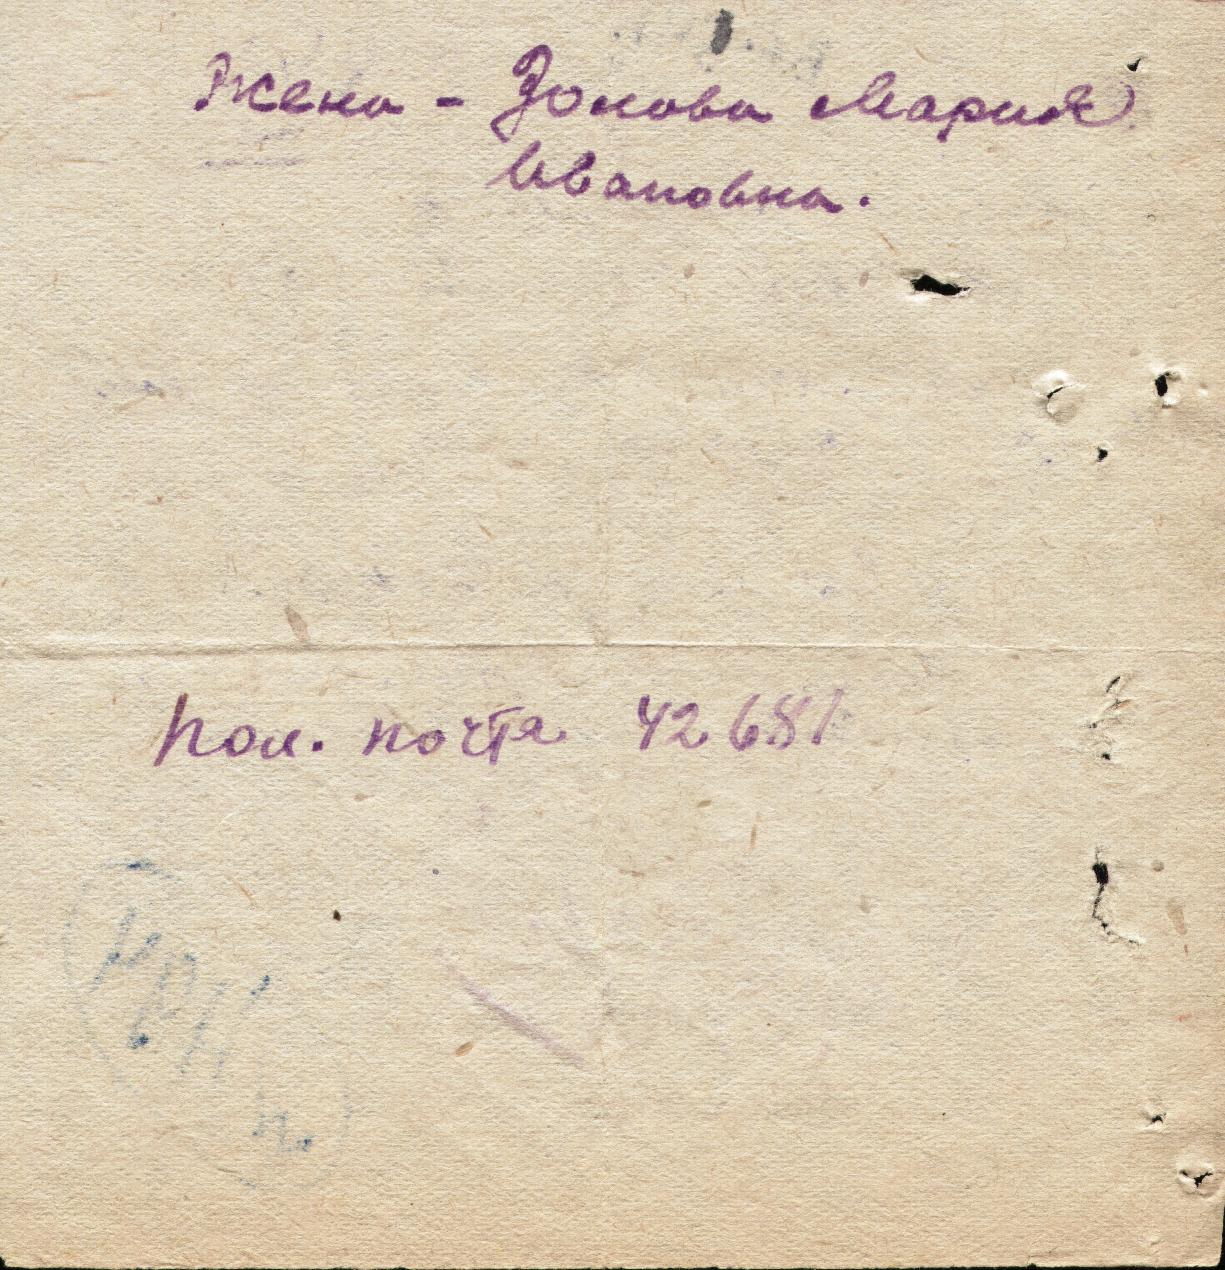 Жена - Зонова Мария
Ивановна.
пол. почта 42681